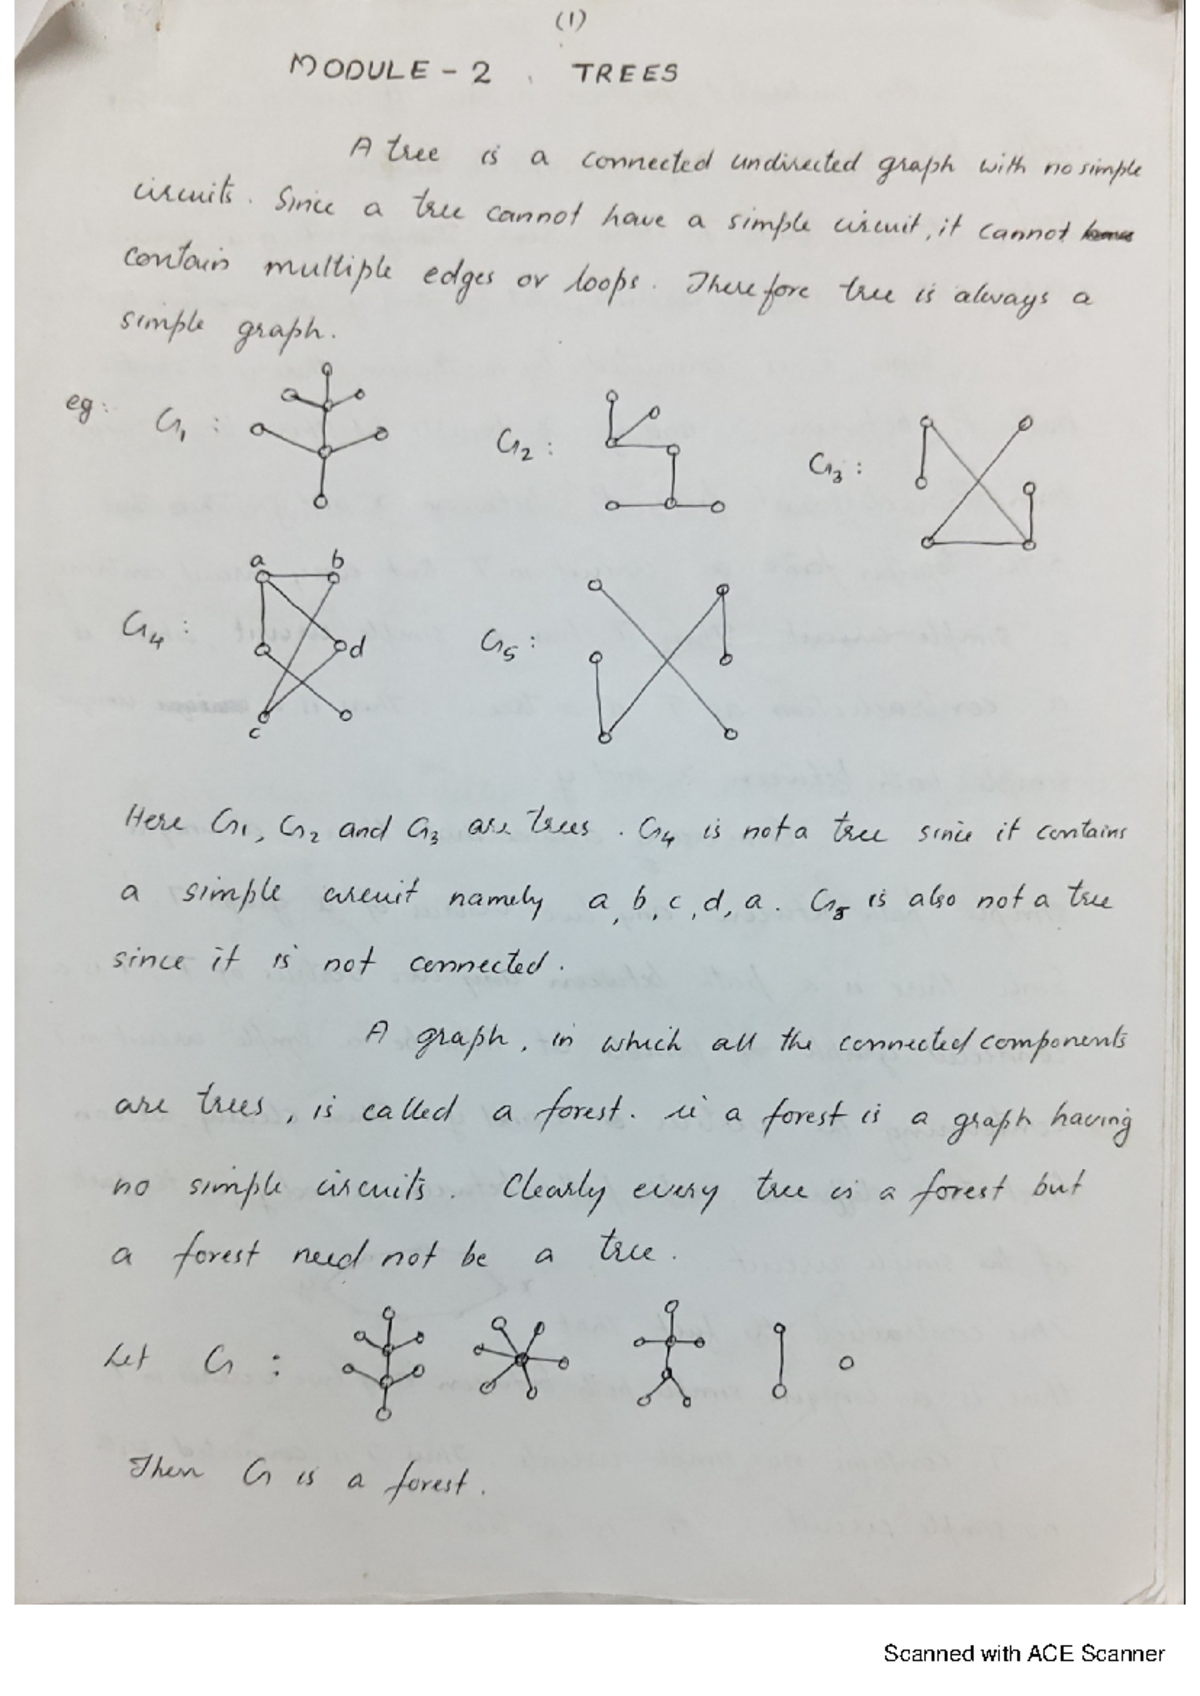 (1)
MODULE - 2 . TREES
A tree is a connected undirected graph with no simple
circuits. Since a tree cannot have a simple circuit, it cannot
contain multiple edges or loops. Therefore tree is always a
simple graph.
eg: G1 : G2 : G3 :
a b
G4 : d G5 :
c
Here G1, G2 and G3 are trees. G4 is not a tree since it contains
a simple circuit namely a, b, c, d, a. G5 is also not a tree
since it is not connected.
A graph, in which all the connected components
are trees, is called a forest. ie a forest is a graph having
no simple circuits. Clearly every tree is a forest but
a forest need not be a tree.
Let G :
Then G is a forest.
Scanned with ACE Scanner